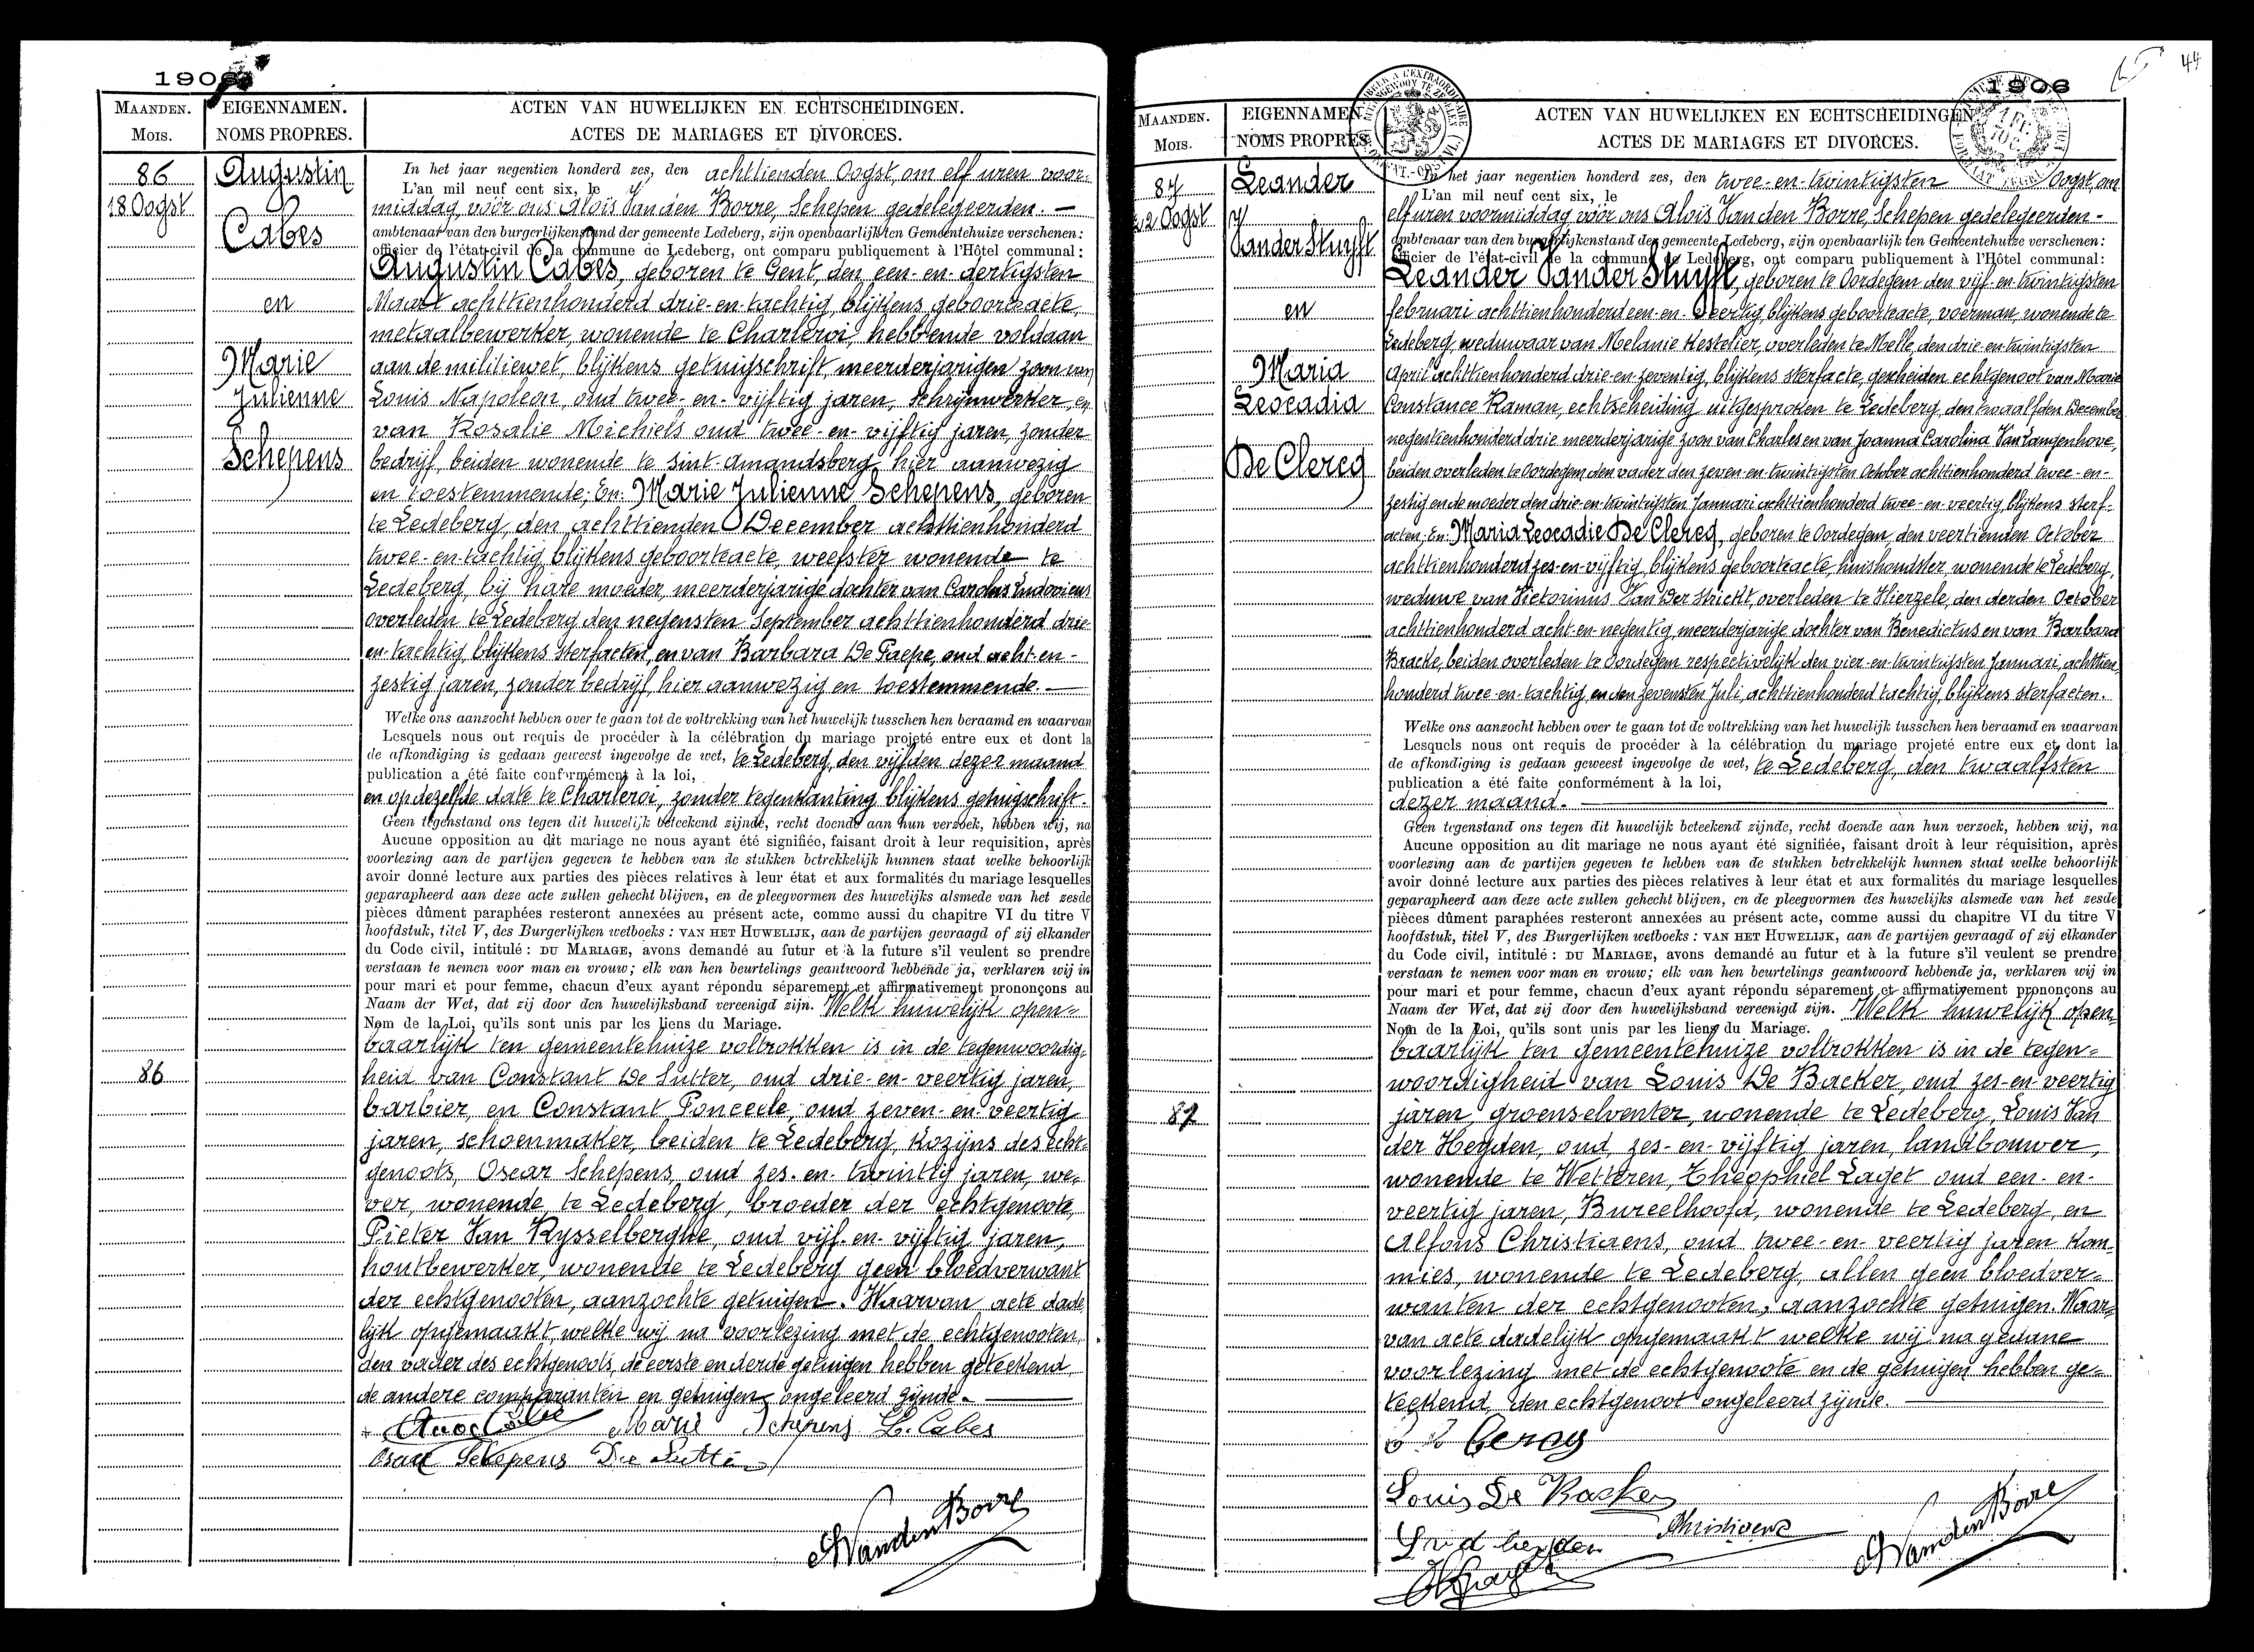 1906
MAANDEN. EIGENNAMEN. ACTEN VAN HUWELIJKEN EN ECHTSCHEIDINGEN.
MOIS. NOMS PROPRES. ACTES DE MARIAGES ET DIVORCES.
86
18 Oogst
Augustin
Cabes
en
Marie
Julienne
Schepens
In het jaar negentien honderd zes, den achttienden Oogst, om elf uren voor-
L'an mil neuf cent six, le
middag, vóór ons Aloïs Van den Borre, Schepen gedelegeerden. —
ambtenaar van den burgerlijkenstand der gemeente Ledeberg, zijn openbaarlijk ten Gemeentehuize verschenen:
officier de l'état-civil de la commune de Ledeberg, ont comparu publiquement à l'Hôtel communal:
Augustin Cabes, geboren te Gent, den een-en-dertigsten
Maart achttienhonderd drie-en-tachtig, blijkens geboorteacte,
metaalbewerker, wonende te Charleroi, hebbende voldaan
aan de militiewet, blijkens getuigschrift, meerderjarigen zoon van
Louis Napoleon, oud twee-en-vijftig jaren, schrijnwerker, en
van Rosalie Michiels oud twee-en-vijftig jaren, zonder
bedrijf, beiden wonende te Sint-Amandsberg, hier aanwezig
en toestemmende; En: Marie Julienne Schepens, geboren
te Ledeberg, den achttienden December achttienhonderd
twee-en-tachtig, blijkens geboorteacte, weefster wonende te
Ledeberg, bij hare moeder, meerderjarige dochter van Carolus Ludovicus
overleden te Ledeberg den negensten September achttienhonderd drie-
en-tachtig, blijkens sterfacten, en van Barbara De Paepe, oud acht-en-
zestig jaren, zonder bedrijf, hier aanwezig en toestemmende. —
Welke ons aanzocht hebben over te gaan tot de voltrekking van het huwelijk tusschen hen beraamd en waarvan
Lesquels nous ont requis de procéder à la célébration du mariage projeté entre eux et dont la
de afkondiging is gedaan geweest ingevolge de wet, te Ledeberg, den vijfden dezer maand
publication a été faite conformément à la loi,
en op dezelfde date te Charleroi, zonder tegenkanting blijkens getuigschrift.
Geen tegenstand ons tegen dit huwelijk beteekend zijnde, recht doende aan hun verzoek, hebben wij, na
Aucune opposition au dit mariage ne nous ayant été signifiée, faisant droit à leur requisition, après
voorlezing aan de partijen gegeven te hebben van de stukken betrekkelijk hunnen staat welke behoorlijk
avoir donné lecture aux parties des pièces relatives à leur état et aux formalités du mariage lesquelles
geparapheerd aan deze acte zullen gehecht blijven, en de pleegvormen des huwelijks alsmede van het zesde
pièces dûment paraphées resteront annexées au présent acte, comme aussi du chapitre VI du titre V
hoofdstuk, titel V, des Burgerlijken wetboeks: VAN HET HUWELIJK, aan de partijen gevraagd of zij elkander
du Code civil, intitulé: DU MARIAGE, avons demandé au futur et à la future s'il veulent se prendre
verstaan te nemen voor man en vrouw; elk van hen beurtelings geantwoord hebbende ja, verklaren wij in
pour mari et pour femme, chacun d'eux ayant répondu séparement et affirmativement prononçons au
Naam der Wet, dat zij door den huwelijksband vereenigd zijn. Welk huwelijk open-
Nom de la Loi, qu'ils sont unis par les liens du Mariage.
baarlijk ten gemeentehuize voltrokken is in de tegenwoordig-
86
heid van Constant De Sutter, oud drie-en-veertig jaren,
barbier, en Constant Ponceele, oud zeven-en-veertig
jaren, schoenmaker, beiden te Ledeberg, kozijns des echt-
genoots, Oscar Schepens, oud zes-en-twintig jaren, we-
ver, wonende te Ledeberg, broeder der echtgenoote,
Pieter Van Rysselberghe, oud vijf-en-vijftig jaren,
houtbewerker, wonende te Ledeberg geen bloedverwant
der echtgenooten, aanzochte getuigen. Waarvan acte dade-
lijk opgemaakt, welke wij na voorlezing met de echtgenooten,
den vader des echtgenoots, de eerste en derde getuigen hebben geteekend,
de andere comparanten en getuigen ongeleerd zijnde. —
Marie Schepens L. Cabes
Oscar Schepens De Sutter
A VandenBorre
1906
44
MAANDEN. EIGENNAMEN. ACTEN VAN HUWELIJKEN EN ECHTSCHEIDINGEN
MOIS. NOMS PROPRES. ACTES DE MARIAGES ET DIVORCES.
87
22 Oogst
Leander
Van der Stuyft
en
Maria
Leocadia
De Clercq
In het jaar negentien honderd zes, den twee-en-twintigsten Oogst, om
L'an mil neuf cent six, le
elf uren voormiddag vóór ons Aloïs Van den Borre, Schepen gedelegeerden -
ambtenaar van den burgerlijkenstand der gemeente Ledeberg, zijn openbaarlijk ten Gemeentehuize verschenen:
officier de l'état-civil de la commune de Ledeberg, ont comparu publiquement à l'Hôtel communal:
Leander Van der Stuyft, geboren te Oordegem den vijf-en-twintigsten
februari achttienhonderd een-en-veertig, blijkens geboorteacte, voerman, wonende te
Ledeberg, weduwaar van Melanie Hestelier, overleden te Melle, den drie-en-twintigsten
April achttienhonderd drie-en-zeventig, blijkens sterfacte, gescheiden echtgenoot van Marie
Constance Raman, echtscheiding uitgesproken te Ledeberg, den twaalfden December
negentienhonderd drie meerderjarige zoon van Charles en van Joanna Carolina Van Langenhove,
beiden overleden te Oordegem, den vader den zeven-en-twintigsten October achttienhonderd twee-en-
zestig en de moeder den drie-en-twintigsten Januari achttienhonderd twee-en-veertig, blijkens sterf-
acten; En: Maria Leocadie De Clercq, geboren te Oordegem, den veertienden October
achttienhonderd zes-en-vijftig, blijkens geboorteacte, huishoudster, wonende te Ledeberg,
weduwe van Victorinus Van Der Stricht, overleden te Hierzele, den derden October
achttienhonderd acht-en-negentig, meerderjarige dochter van Benedictus en van Barbara
Bracke, beiden overleden te Oordegem respectivelijk den vier-en-twintigsten Januari, achttien-
honderd twee-en-tachtig, en den zevensten Juli, achttienhonderd tachtig, blijkens sterfacten.
Welke ons aanzocht hebben over te gaan tot de voltrekking van het huwelijk tusschen hen beraamd en waarvan
Lesquels nous ont requis de procéder à la célébration du mariage projeté entre eux et dont la
de afkondiging is gedaan geweest ingevolge de wet, te Ledeberg, den twaalfsten
publication a été faite conformément à la loi,
dezer maand. —
Geen tegenstand ons tegen dit huwelijk beteekend zijnde, recht doende aan hun verzoek, hebben wij, na
Aucune opposition au dit mariage ne nous ayant été signifiée, faisant droit à leur réquisition, après
voorlezing aan de partijen gegeven te hebben van de stukken betrekkelijk hunnen staat welke behoorlijk
avoir donné lecture aux parties des pièces relatives à leur état et aux formalités du mariage lesquelles
geparapheerd aan deze acte zullen gehecht blijven, en de pleegvormen des huwelijks alsmede van het zesde
pièces dûment paraphées resteront annexées au présent acte, comme aussi du chapitre VI du titre V
hoofdstuk, titel V, des Burgerlijken wetboeks: VAN HET HUWELIJK, aan de partijen gevraagd of zij elkander
du Code civil, intitulé: DU MARIAGE, avons demandé au futur et à la future s'il veulent se prendre
verstaan te nemen voor man en vrouw; elk van hen beurtelings geantwoord hebbende ja, verklaren wij in
pour mari et pour femme, chacun d'eux ayant répondu séparement et affirmativement prononçons au
Naam der Wet, dat zij door den huwelijksband vereenigd zijn. Welk huwelijk open-
Nom de la Loi, qu'ils sont unis par les liens du Mariage.
baarlijk ten gemeentehuize voltrokken is in de tegen-
woordigheid van Louis De Backer, oud zes-en-veertig
87
jaren, groenselventer, wonende te Ledeberg, Louis Van
der Heyden, oud, zes-en-vijftig jaren, landbouwer,
wonende te Wetteren, Théophiel Laget oud een-en-
veertig jaren, Bureelhoofd, wonende te Ledeberg, en
Alfons Christiaens, oud twee-en-veertig jaren kom-
mies, wonende te Ledeberg, allen geen bloedver-
wanten der echtgenooten, aanzochte getuigen. Waar-
van acte dadelijk opgemaakt welke wij na gedane
voorlezing met de echtgenoote en de getuigen hebben ge-
teekend, den echtgenoot ongeleerd zijnde. —
Louis De Backer
Christiaens
A VandenBorre